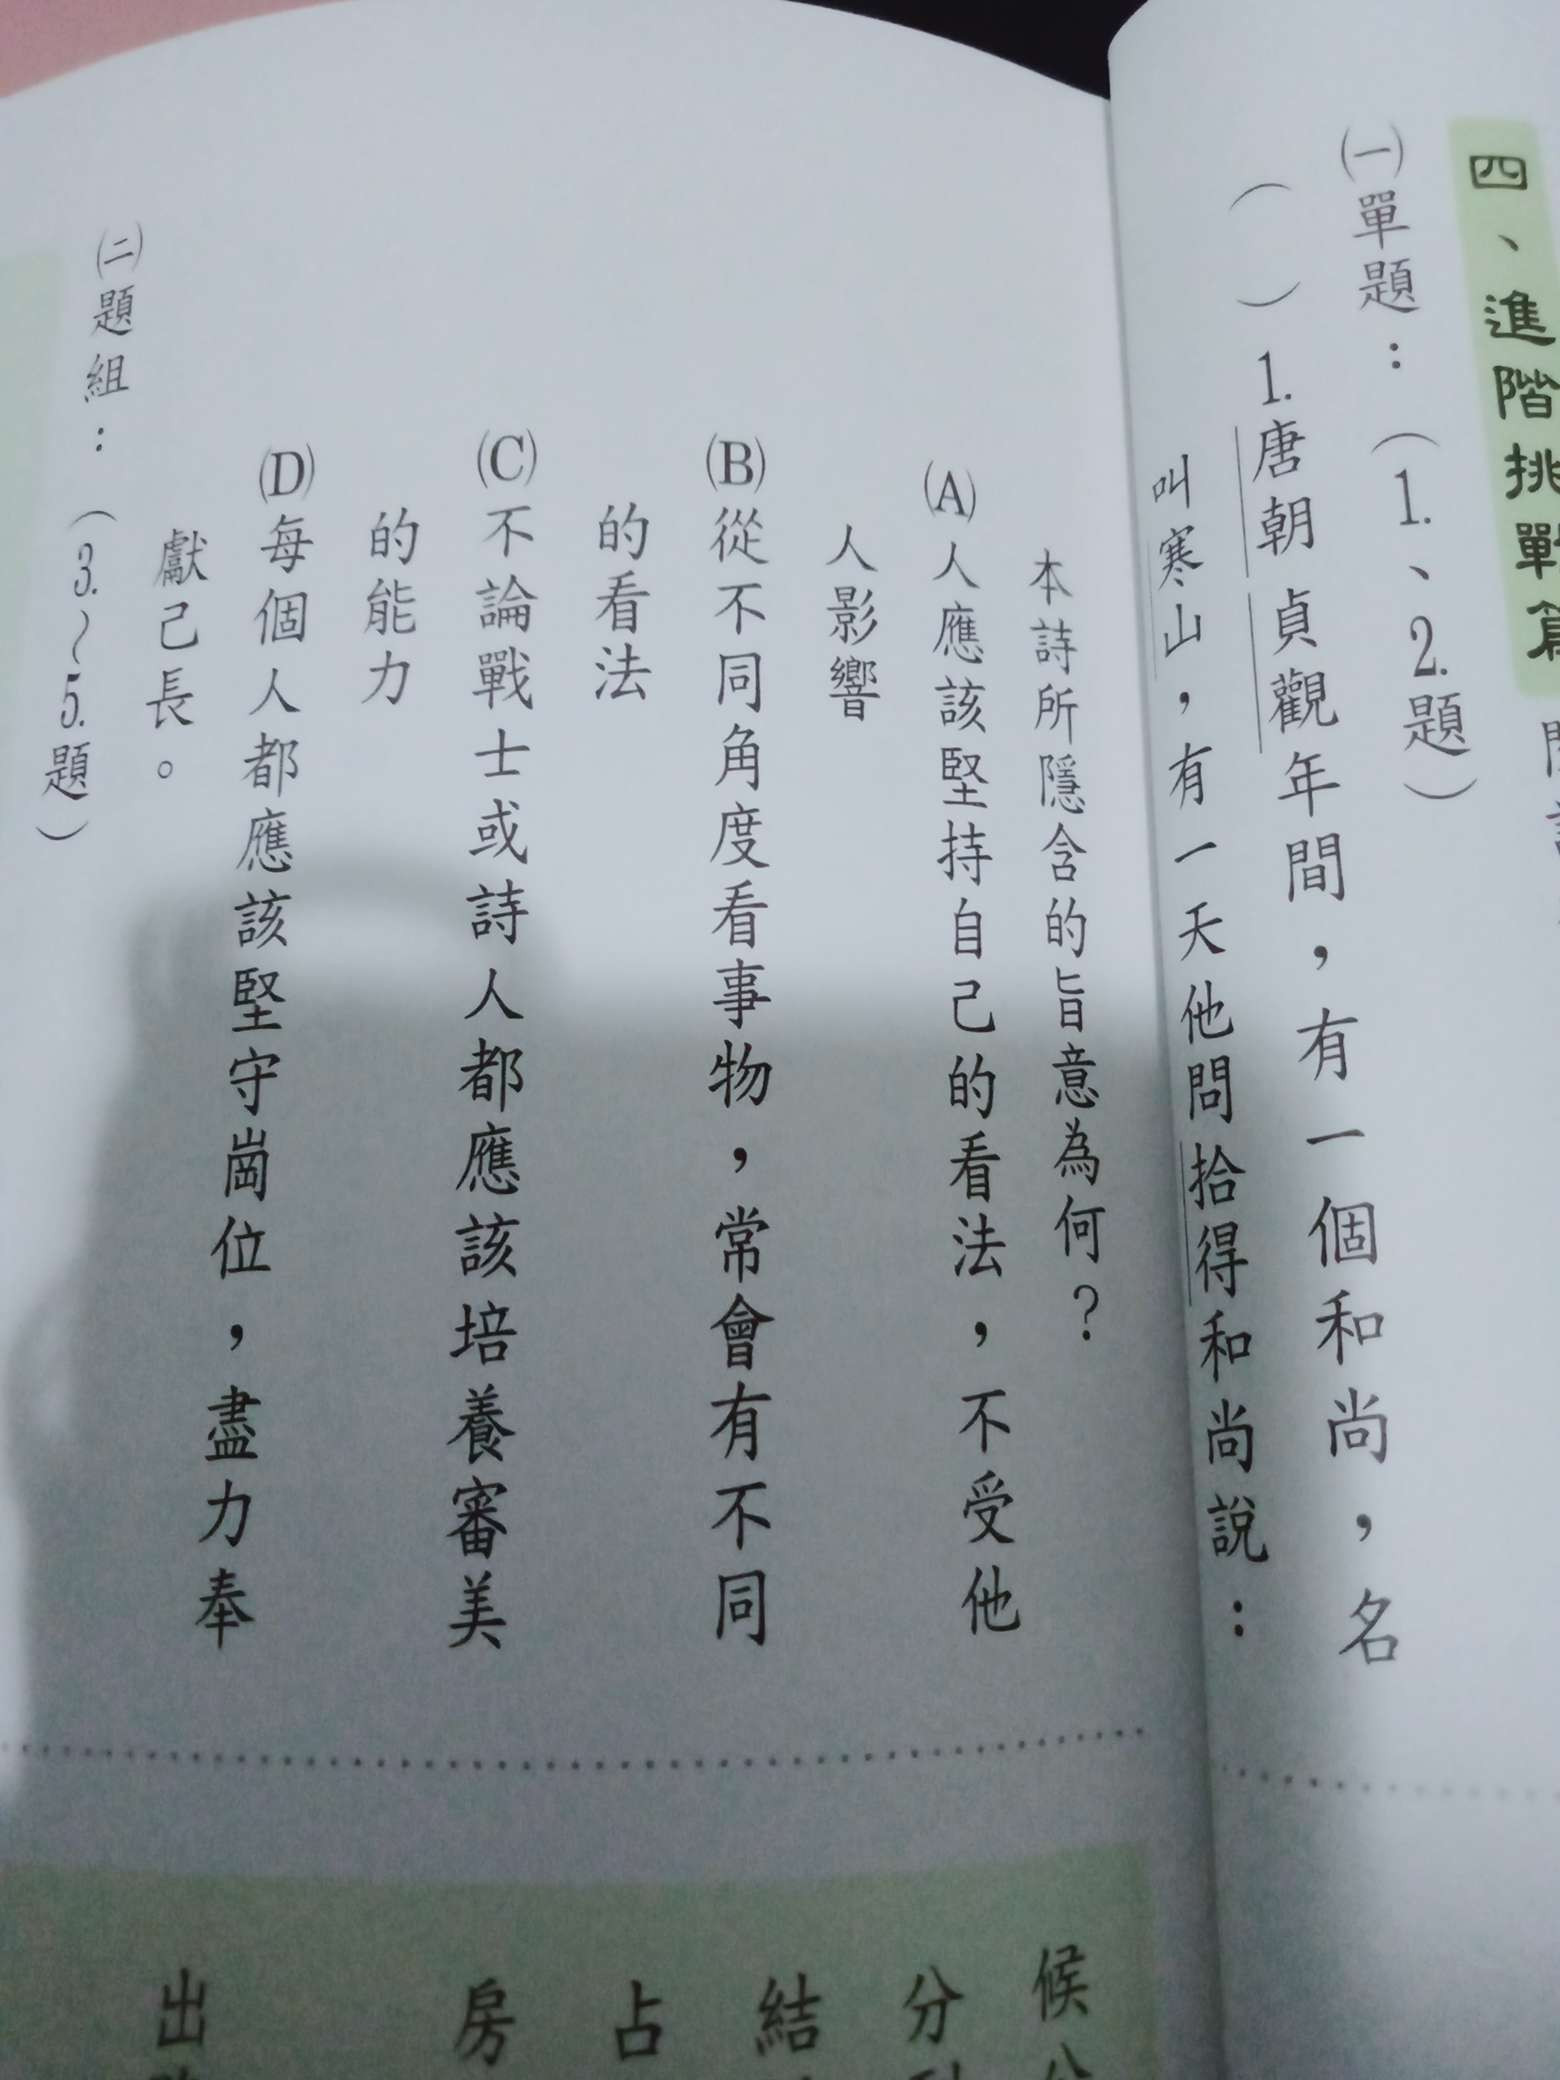 四、進階挑戰篇
㈠單題：（1.、2.題）
（　）1.唐朝貞觀年間，有一個和尚，名
叫寒山，有一天他問拾得和尚說：
本詩所隱含的旨意為何？
(A)人應該堅持自己的看法，不受他
人影響
(B)從不同角度看事物，常會有不同
的看法
(C)不論戰士或詩人都應該培養審美
的能力
(D)每個人都應該堅守崗位，盡力奉
獻己長。
㈡題組：（3.～5.題）
候
分
結
占
房
出